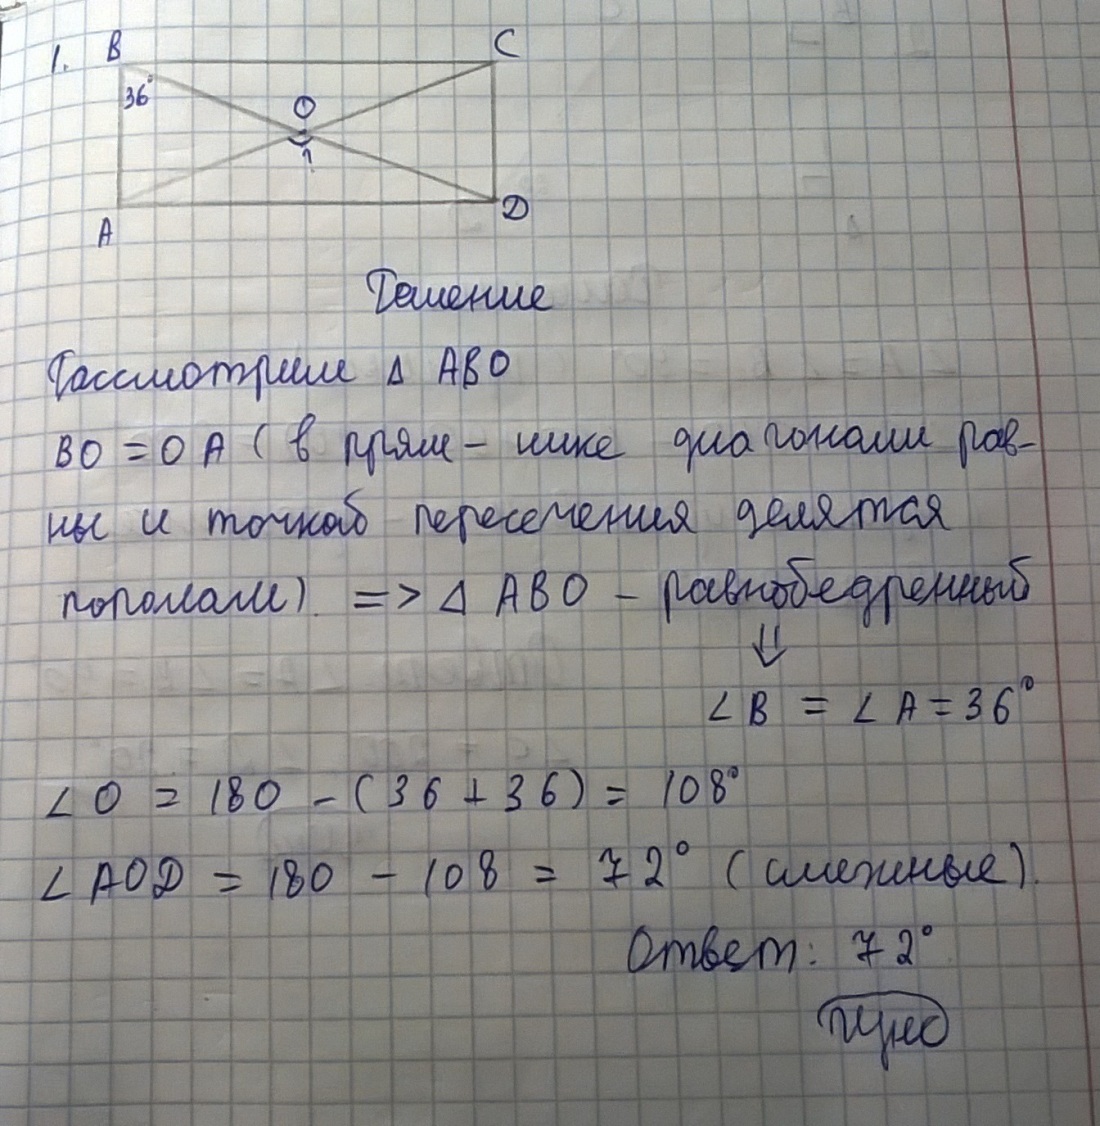 1. B C
36°
O
?
A D
Решение
Рассмотрим Δ ABO
BO = OA ( в прям-нике диагонали рав-
ны и точкой пересечения делятся
пополам). => Δ ABO - равнобедренный
⇓
∠B = ∠A = 36°
∠O = 180 - (36 + 36) = 108°
∠AOD = 180 - 108 = 72° (смежные).
Ответ: 72°